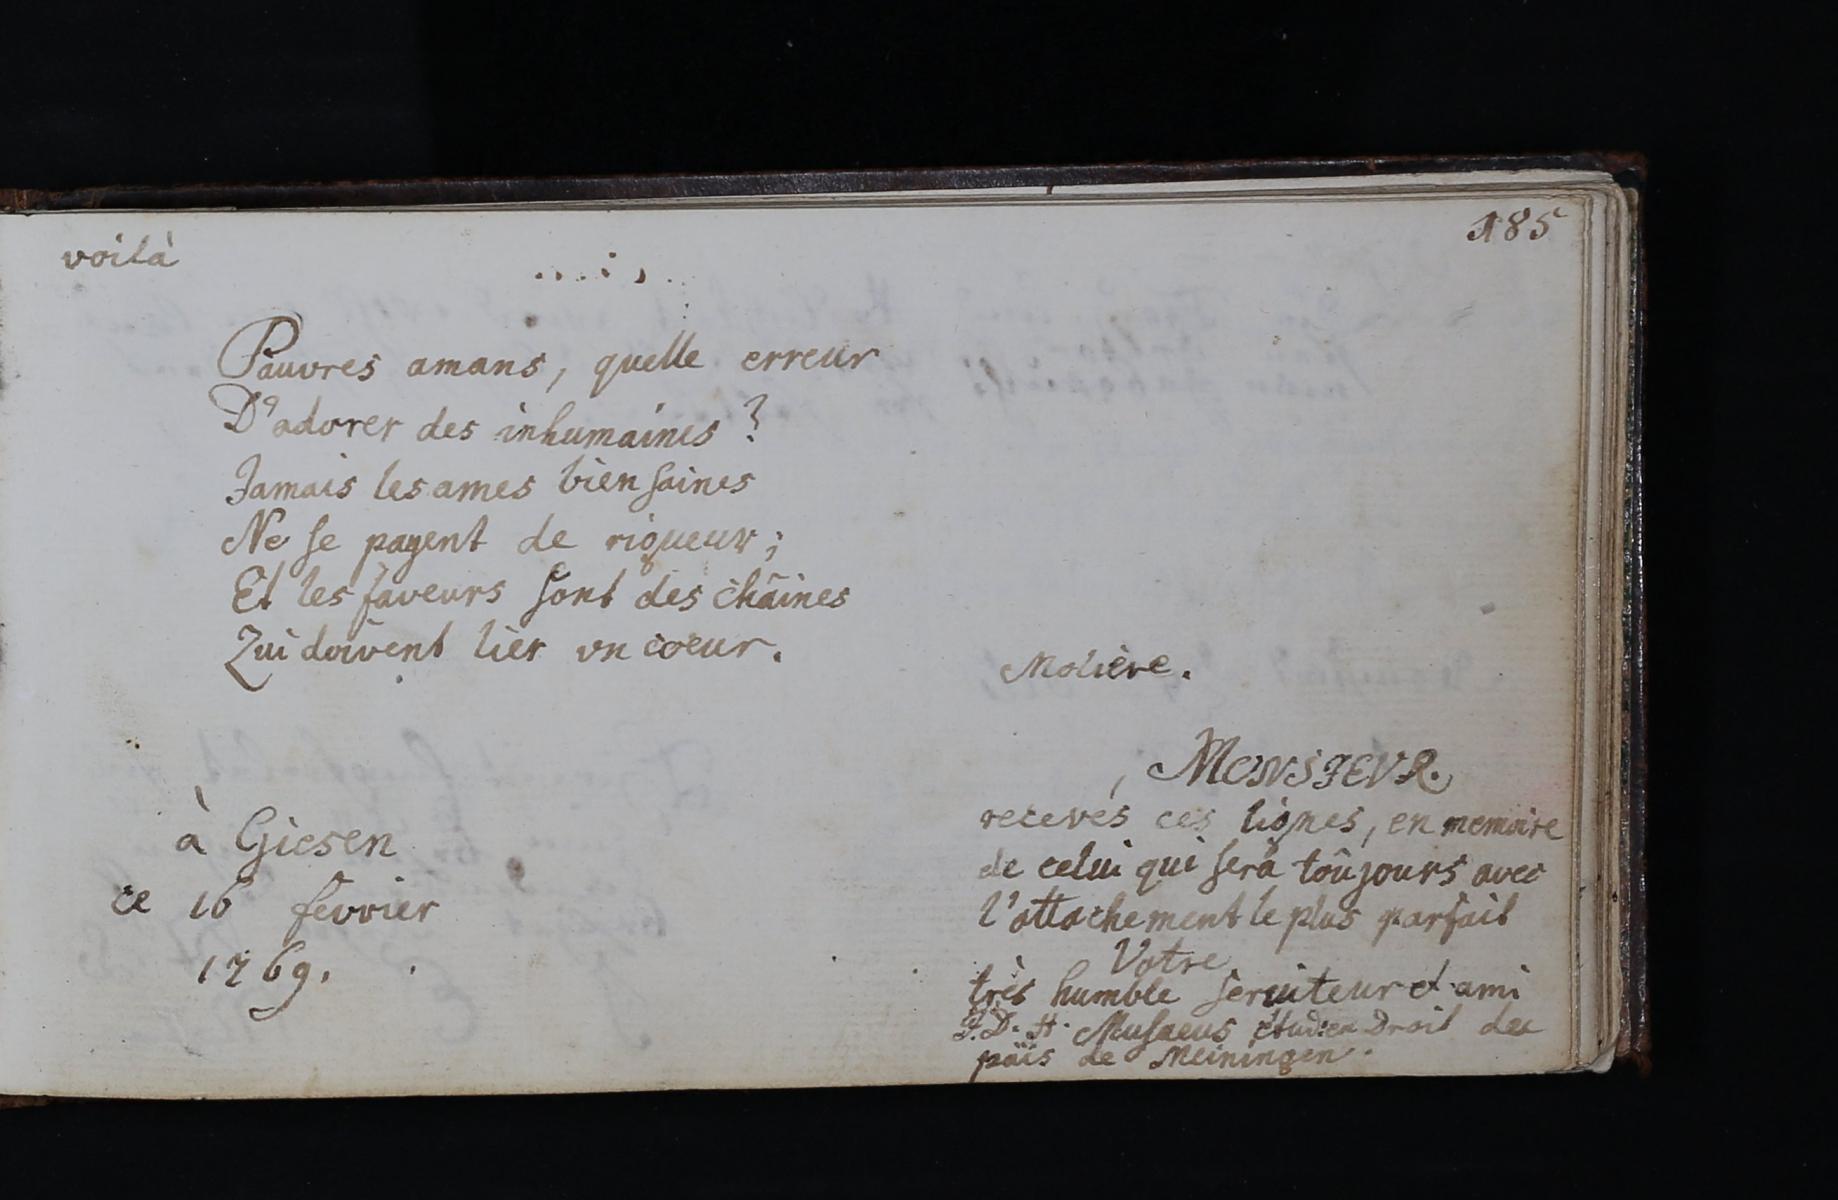 185
voilà
Pauvres amans, quelle erreur
D'adorer des inhumaines?
Jamais les ames bien saines
Ne se payent de rigueur;
Et les faveurs sont des chaînes
Qui doivent lier un coeur.
Molière.
à Giesen
ce 16 fevrier
1769.
MONSIEUR.
recevés ces lignes, en memoire
de celui qui sera toûjours avec
l'attachement le plus parfait
Votre
très humble serviteur et ami
J. D. H. Musaeus étud: en Droit du
païs de Meiningen.